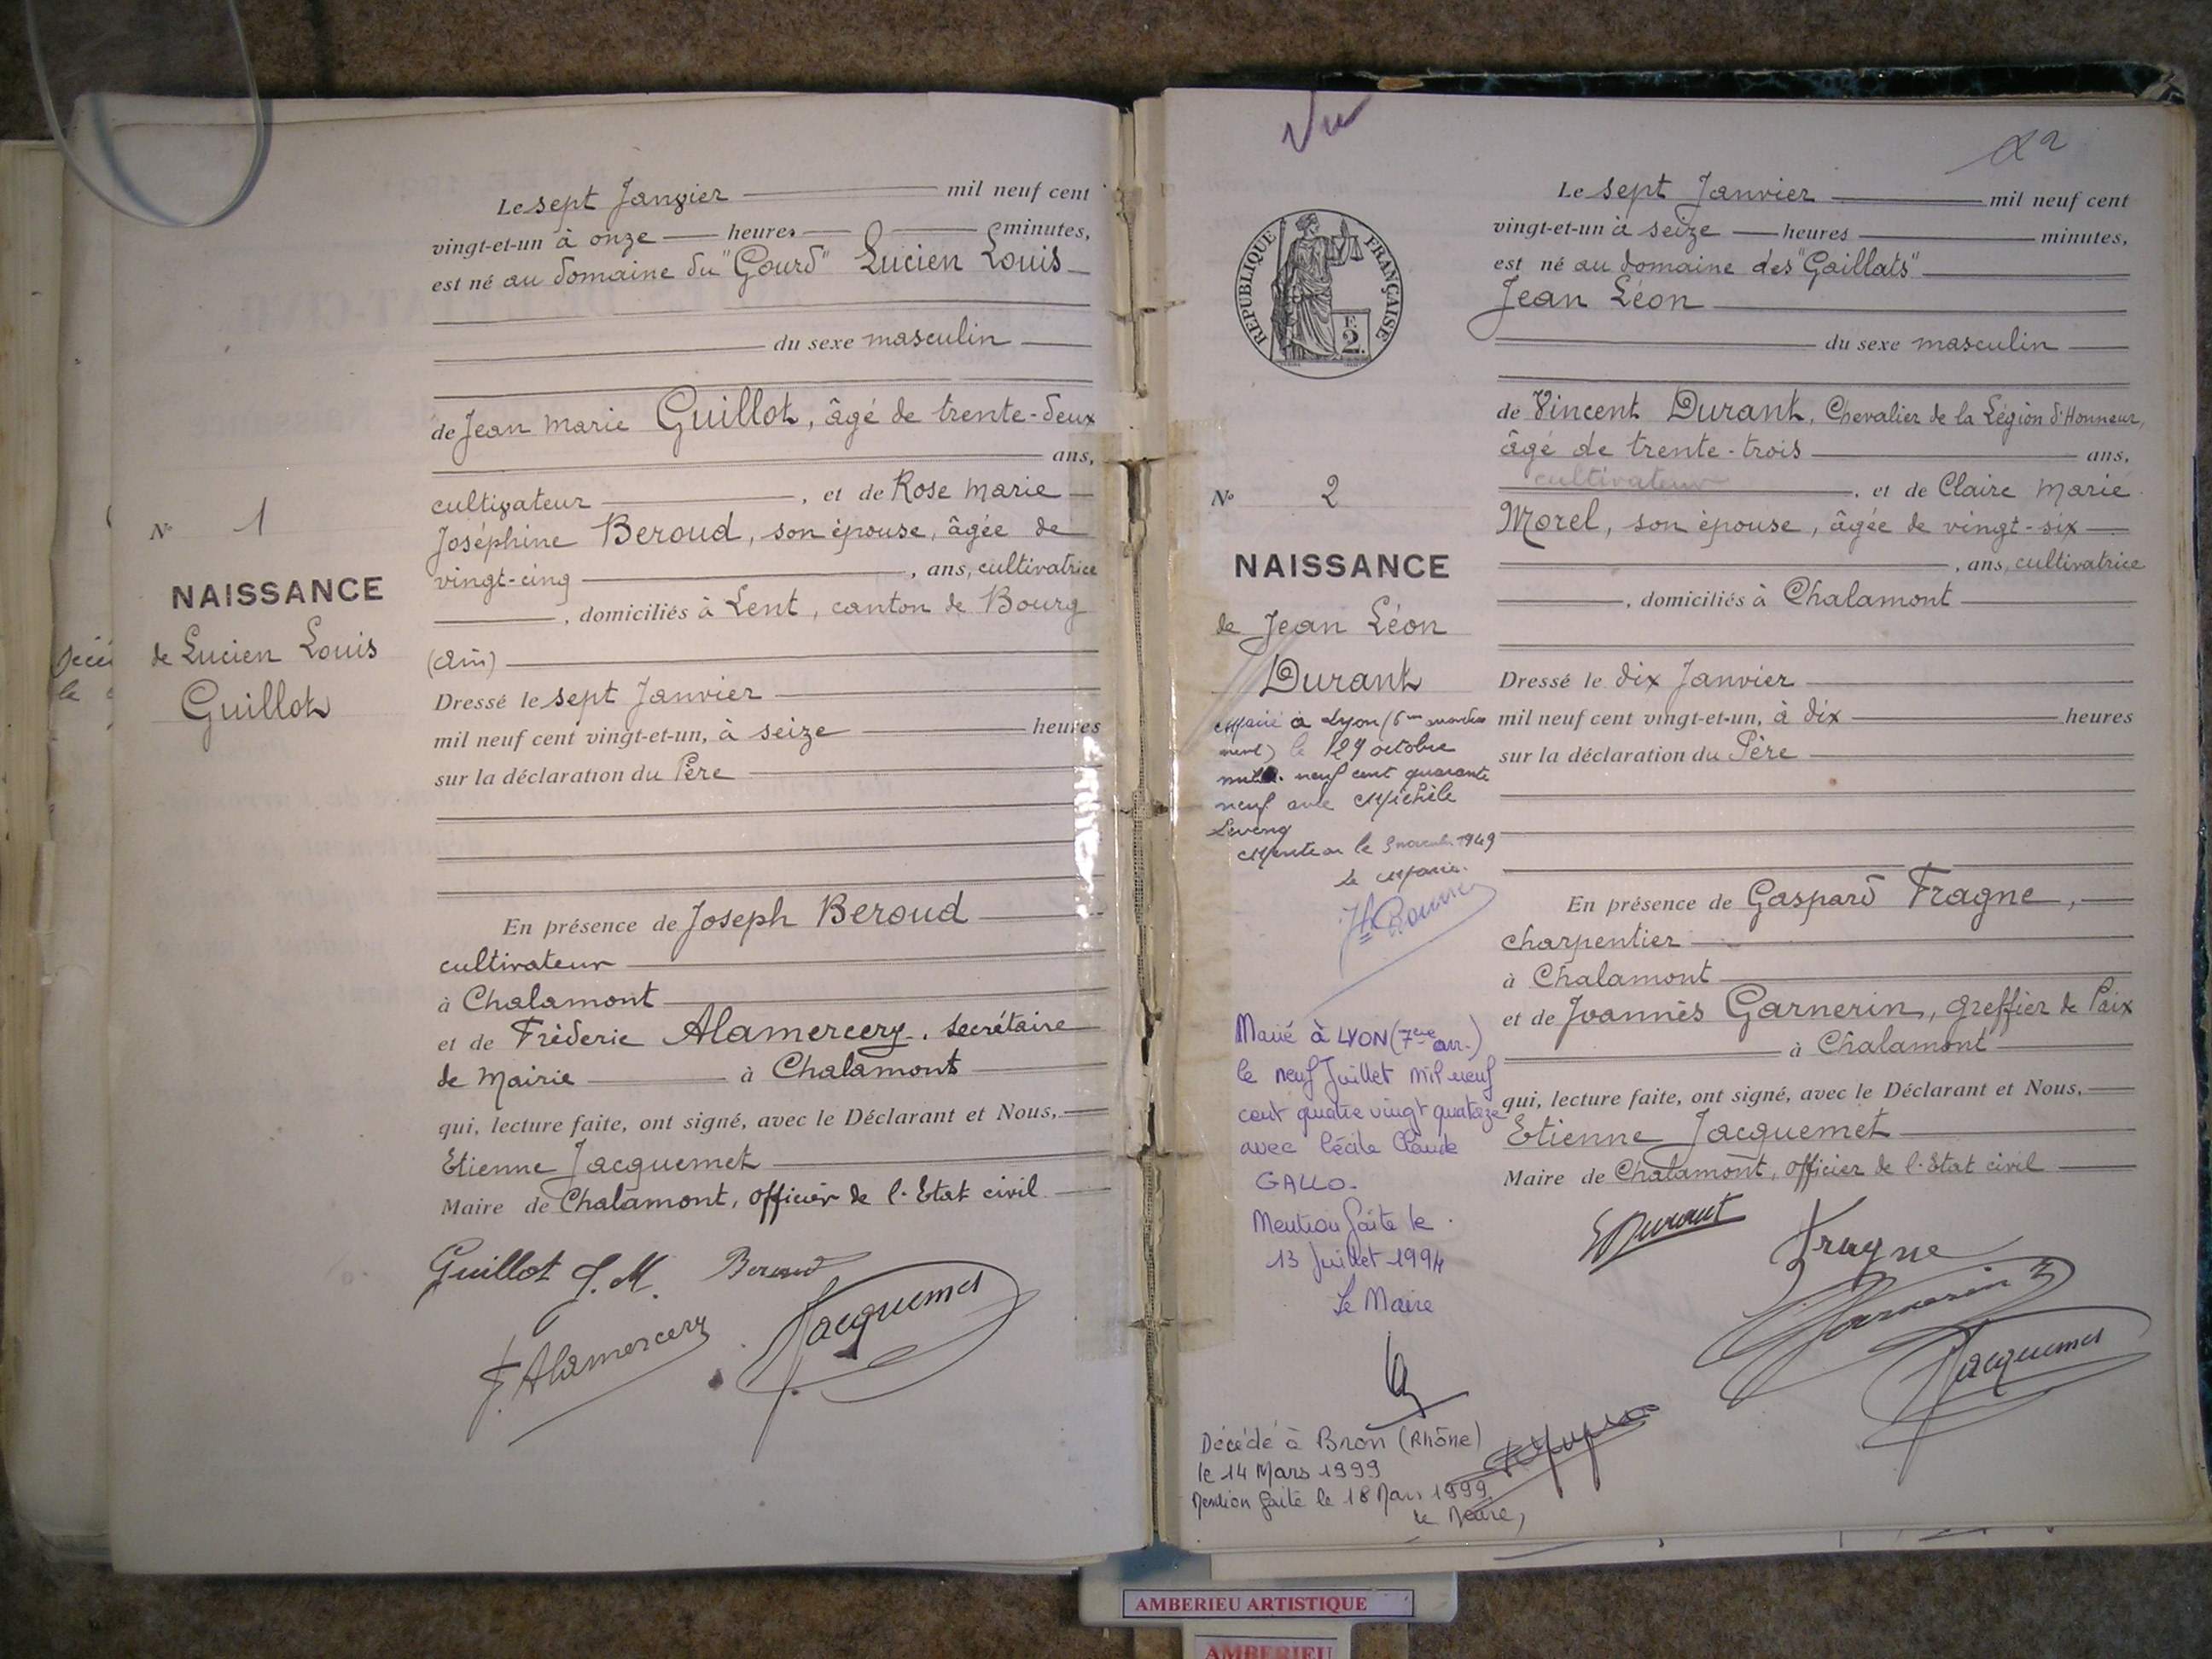 Le sept Janvier mil neuf cent
vingt-et-un à onze heures minutes,
est né au domaine du "Gourd" Lucien Louis
du sexe masculin
de Jean Marie Guillot, âgé de trente-deux
ans,
cultivateur , et de Rose Marie
Joséphine Beroud, son épouse, âgée de
vingt-cinq , ans, cultivatrice
, domiciliés à Lent, canton de Bourg
(Ain)
Dressé le sept Janvier
mil neuf cent vingt-et-un, à seize heures
sur la déclaration du Père
En présence de Joseph Beroud
cultivateur
à Chalamont
et de Fréderic Alamercery, secrétaire
de Mairie à Chalamont
qui, lecture faite, ont signé, avec le Déclarant et Nous,
Etienne Jacquemet
Maire de Chalamont, officier de l'Etat civil
Guillot J.M. Beroud
F. Alamercery Jacquemet
N° 1
NAISSANCE
de Lucien Louis
Guillot
Décé
le
Vu
2
RÉPUBLIQUE FRANÇAISE
F.
2.
Le sept Janvier mil neuf cent
vingt-et-un à seize heures minutes,
est né au domaine des "Gaillats"
Jean Léon
du sexe masculin
de Vincent Durant, Chevalier de la Légion d'Honneur,
âgé de trente-trois ans,
cultivateur , et de Claire Marie
Morel, son épouse, âgée de vingt-six
, ans, cultivatrice
, domiciliés à Chalamont
Dressé le dix Janvier
mil neuf cent vingt-et-un, à dix heures
sur la déclaration du Père
En présence de Gaspard Fragne,
charpentier
à Chalamont
et de Joannès Garnerin, greffier de Paix
à Chalamont
qui, lecture faite, ont signé, avec le Déclarant et Nous,
Etienne Jacquemet
Maire de Chalamont, officier de l'Etat civil
Durant Fragne
Garnerin
Jacquemet
N° 2
NAISSANCE
de Jean Léon
Durant
Marié à Lyon
le 29 octobre
neuf cent quarante
neuf avec Michèle
Mention le 3 novembre 1949
Le Maire.
Marié à LYON (7eme arr.)
le neuf Juillet mil neuf
cent quatre vingt quatorze
avec Cécile Claude
GALLO.
Mention faite le
13 Juillet 1994
Le Maire
Décédé à Bron (Rhône)
le 14 Mars 1999
Mention faite le 18 Mars 1999
Le Maire,
AMBERIEU ARTISTIQUE
AMBERIEU